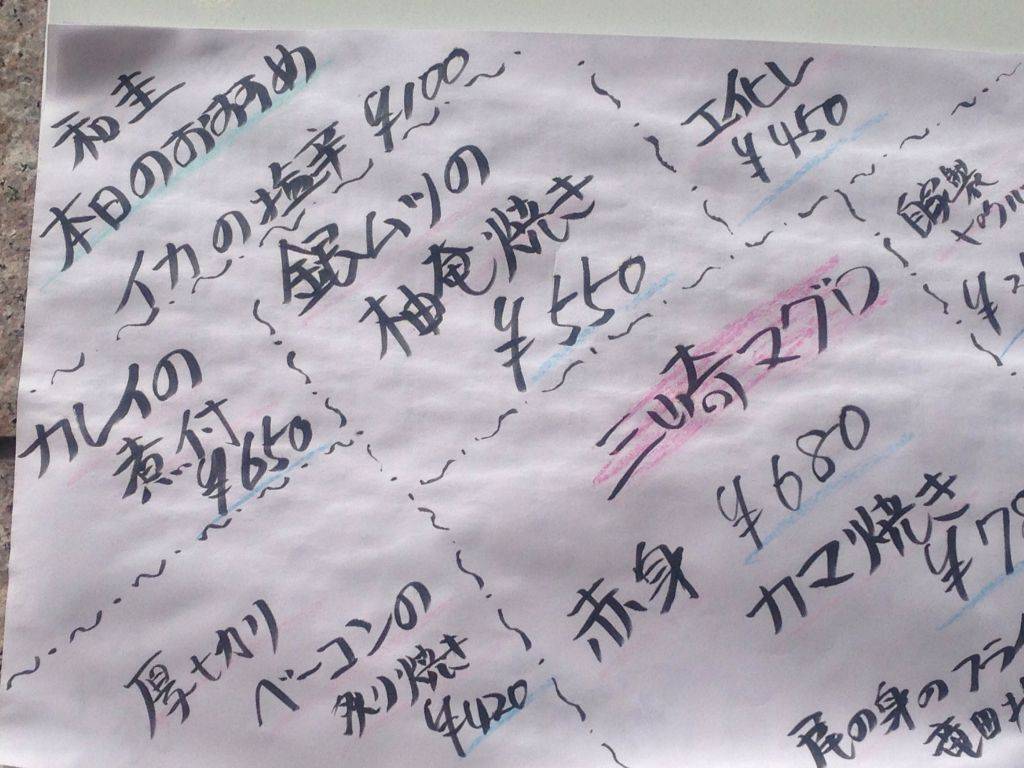 和圭
本日のおすすめ
イカの塩辛 ¥100
銀ムツの
柚庵焼き
¥550
カレイの
煮付
¥650
厚切り
ベーコンの
炙り焼き
¥420
¥450
自家製
三崎の マグロ
赤身 ¥680
カマ焼き
¥78
尾の身のフライ
竜田